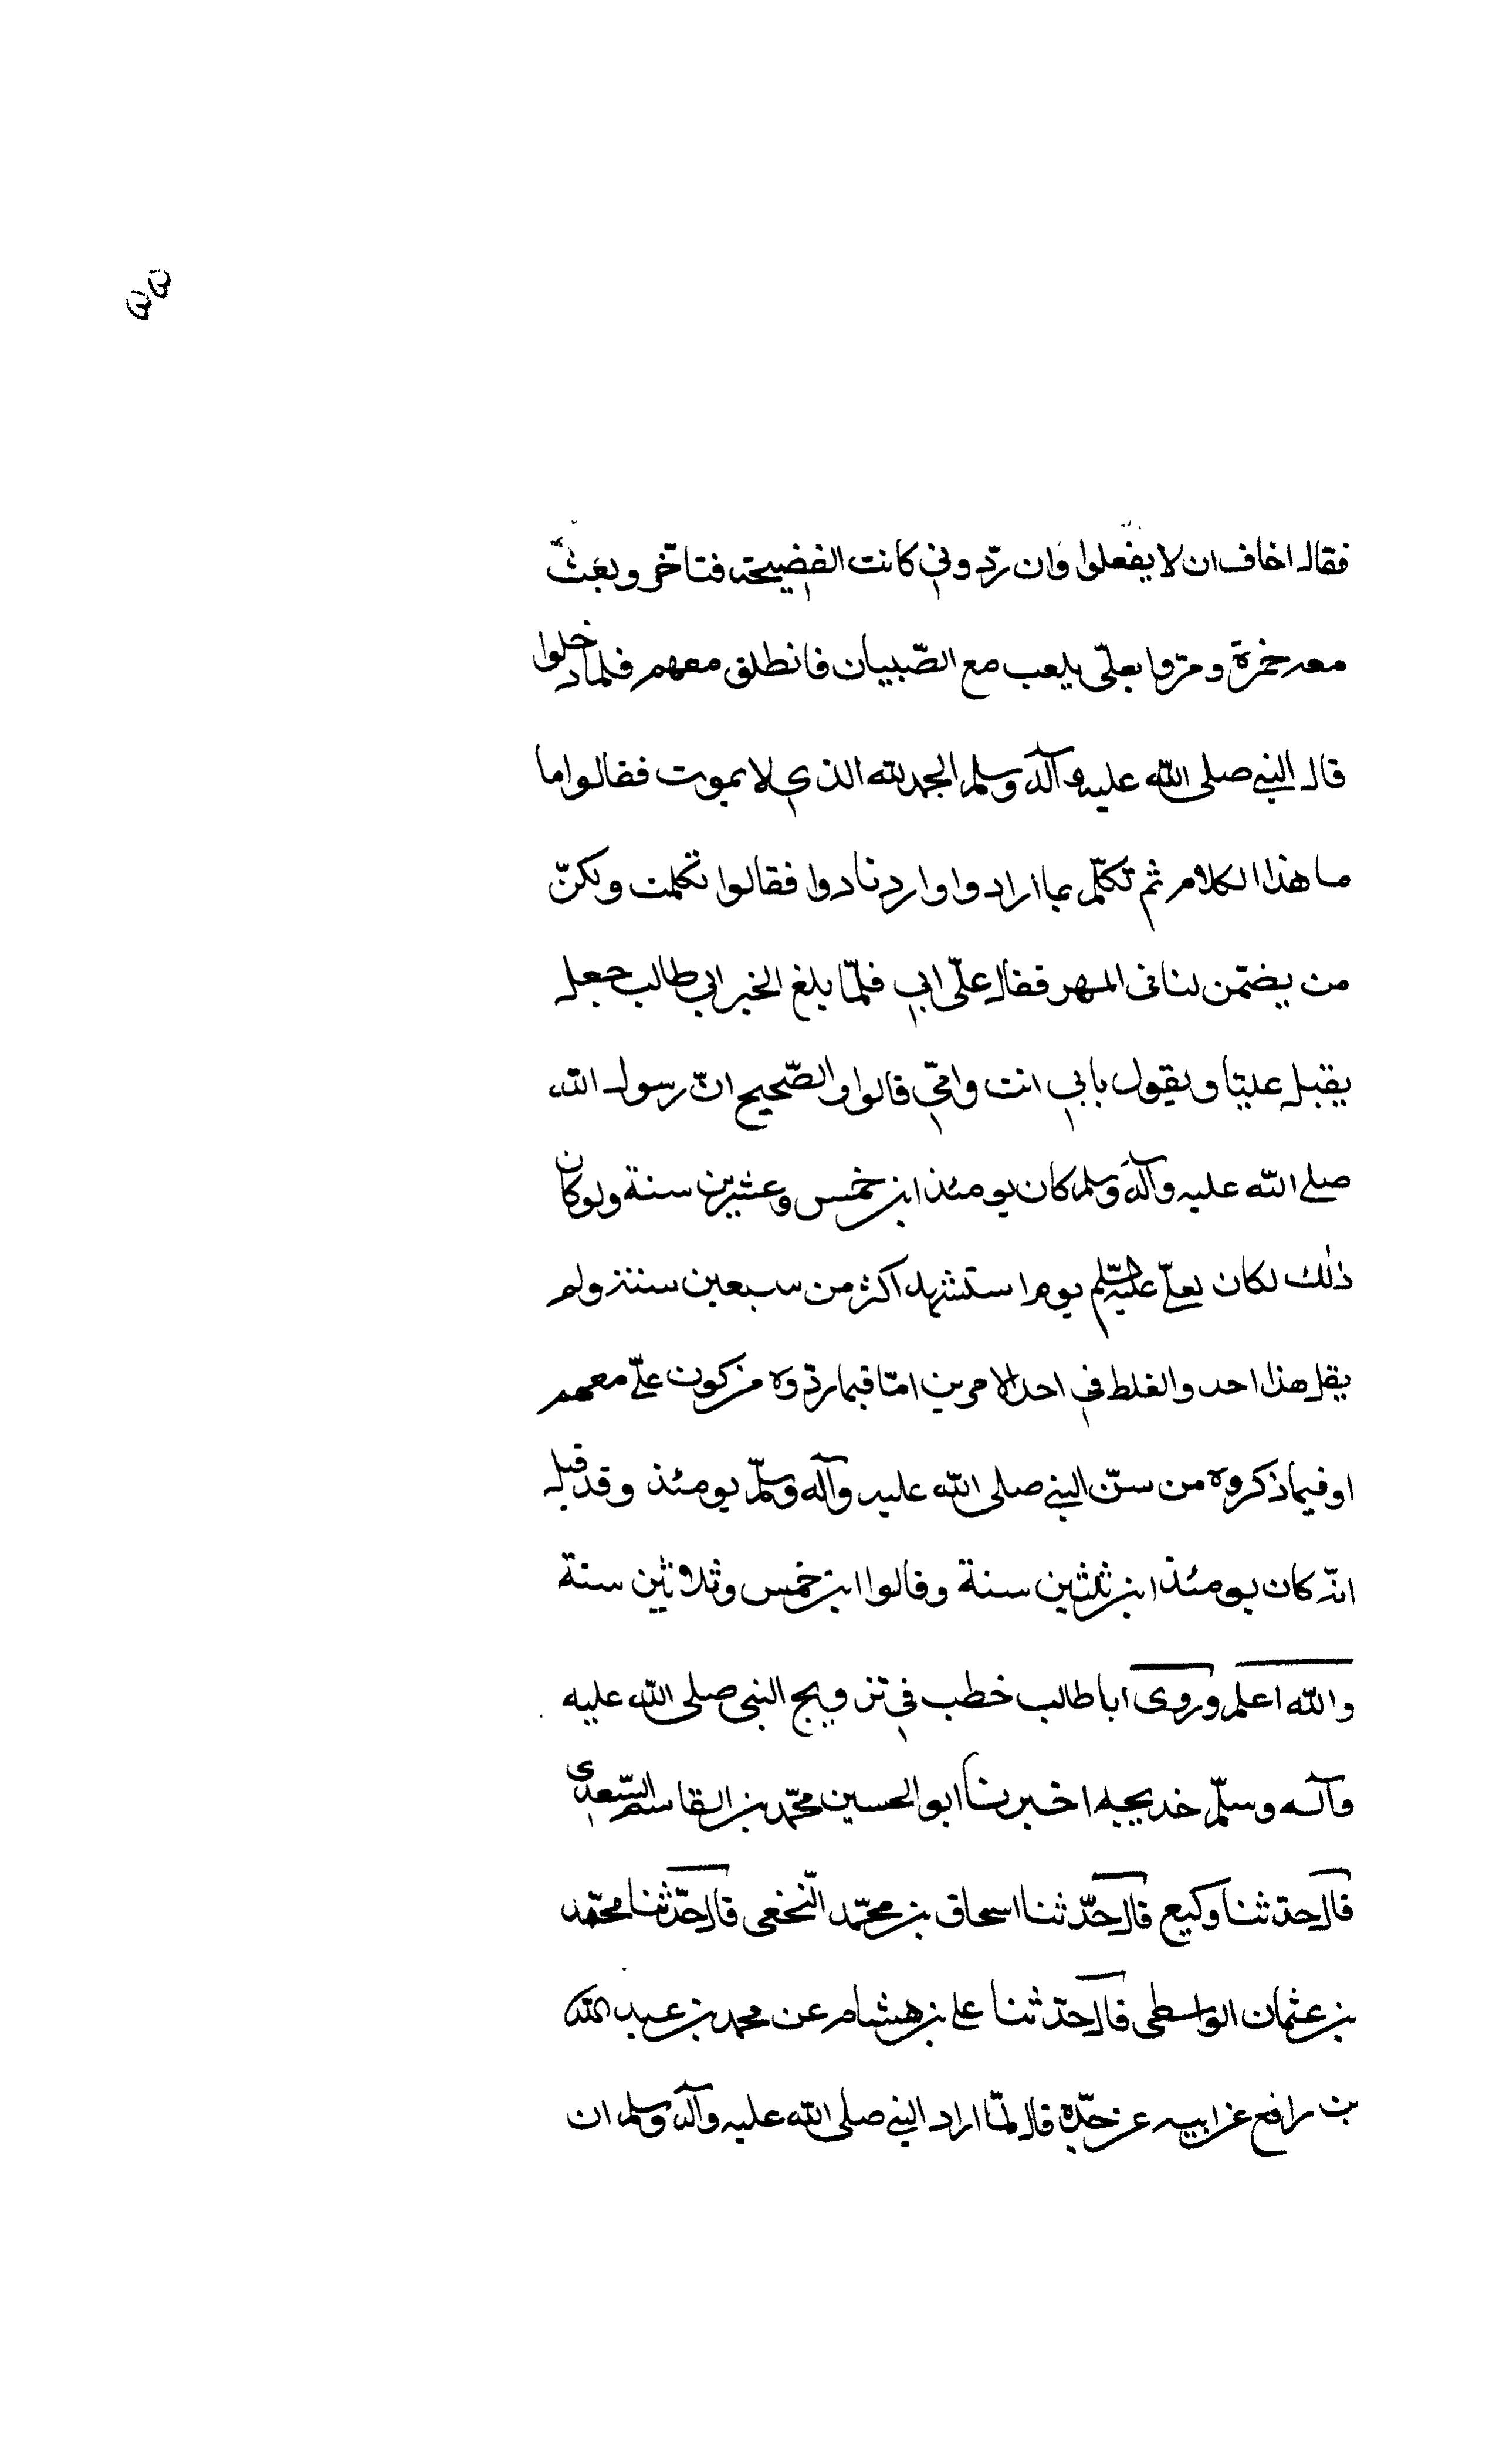 ٥٥
فقال اخاف ان لا يفعلوا وان ردّوني كانت الفضيحة فتأخّر وبعث
معه حمزة ومرّوا بعلّي يلعب مع الصّبيان فانطلق معهم فلما دخلوا
قال النبي صلى الله عليه وآله وسلم الحمد لله الذي لا يموت فقالوا ما
ما هذا الكلام ثم تكلّم بما ارادوا وارد نادوا فقالوا تكلمت ولكنّ
من يضمّن لنا في المهر فقال علّي ابي فلمّا بلغ الخبر ابي طالب جعل
يقبل عليّا ويقول بابي انت وامّي قالوا والصّحيح انّ رسول الله
صلى الله عليه وآله وسلم كان يومئذ ابن خمس وعشرين سنة ولو كان
ذلك لكان لعلّي عليه السّلم يوم استشهد اكثر من سبعين سنة ولم
يقل هذا احد والغلط في احد الامرين امّا فيما رووه من كون علّي معهم
او فيما ذكروه من سنّ النبي صلى الله عليه وآله وسلّم يومئذ وقد قيل
انّه كان يومئذ ابن ثلثين سنة وقالوا ابن خمس وثلاثين سنة
والله اعلم وروى ابا طالب خطب في تزويج النبي صلى الله عليه
وآله وسلّم خديجه اخبرنا ابو الحسين محمّد بن القاسم السّعدي
قال حدثنا وكيع قال حدّثنا اسحاق بن محمّد النّخعي قال حدّثنا محمّد
بن عثمان الواسطي قال حدّثنا علي بن هشام عن محمد بن عبيد الله
بن رافع عن ابيه عن جدّه قال لمّا اراد النبي صلى الله عليه وآله وسلم ان